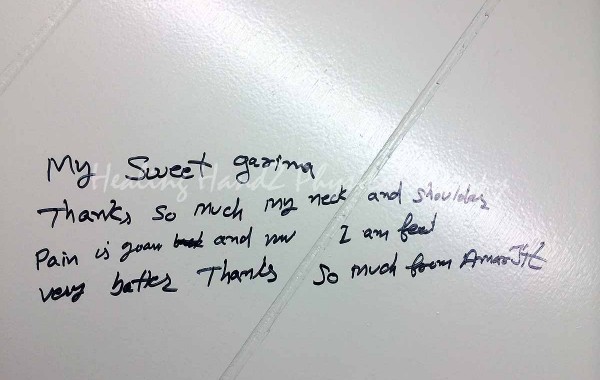 My Sweet garima
Healing Handz Phy
Thanks so much my neck and shoulder
Pain is goan and I am feel
very batter Thanks so much from Amarjit